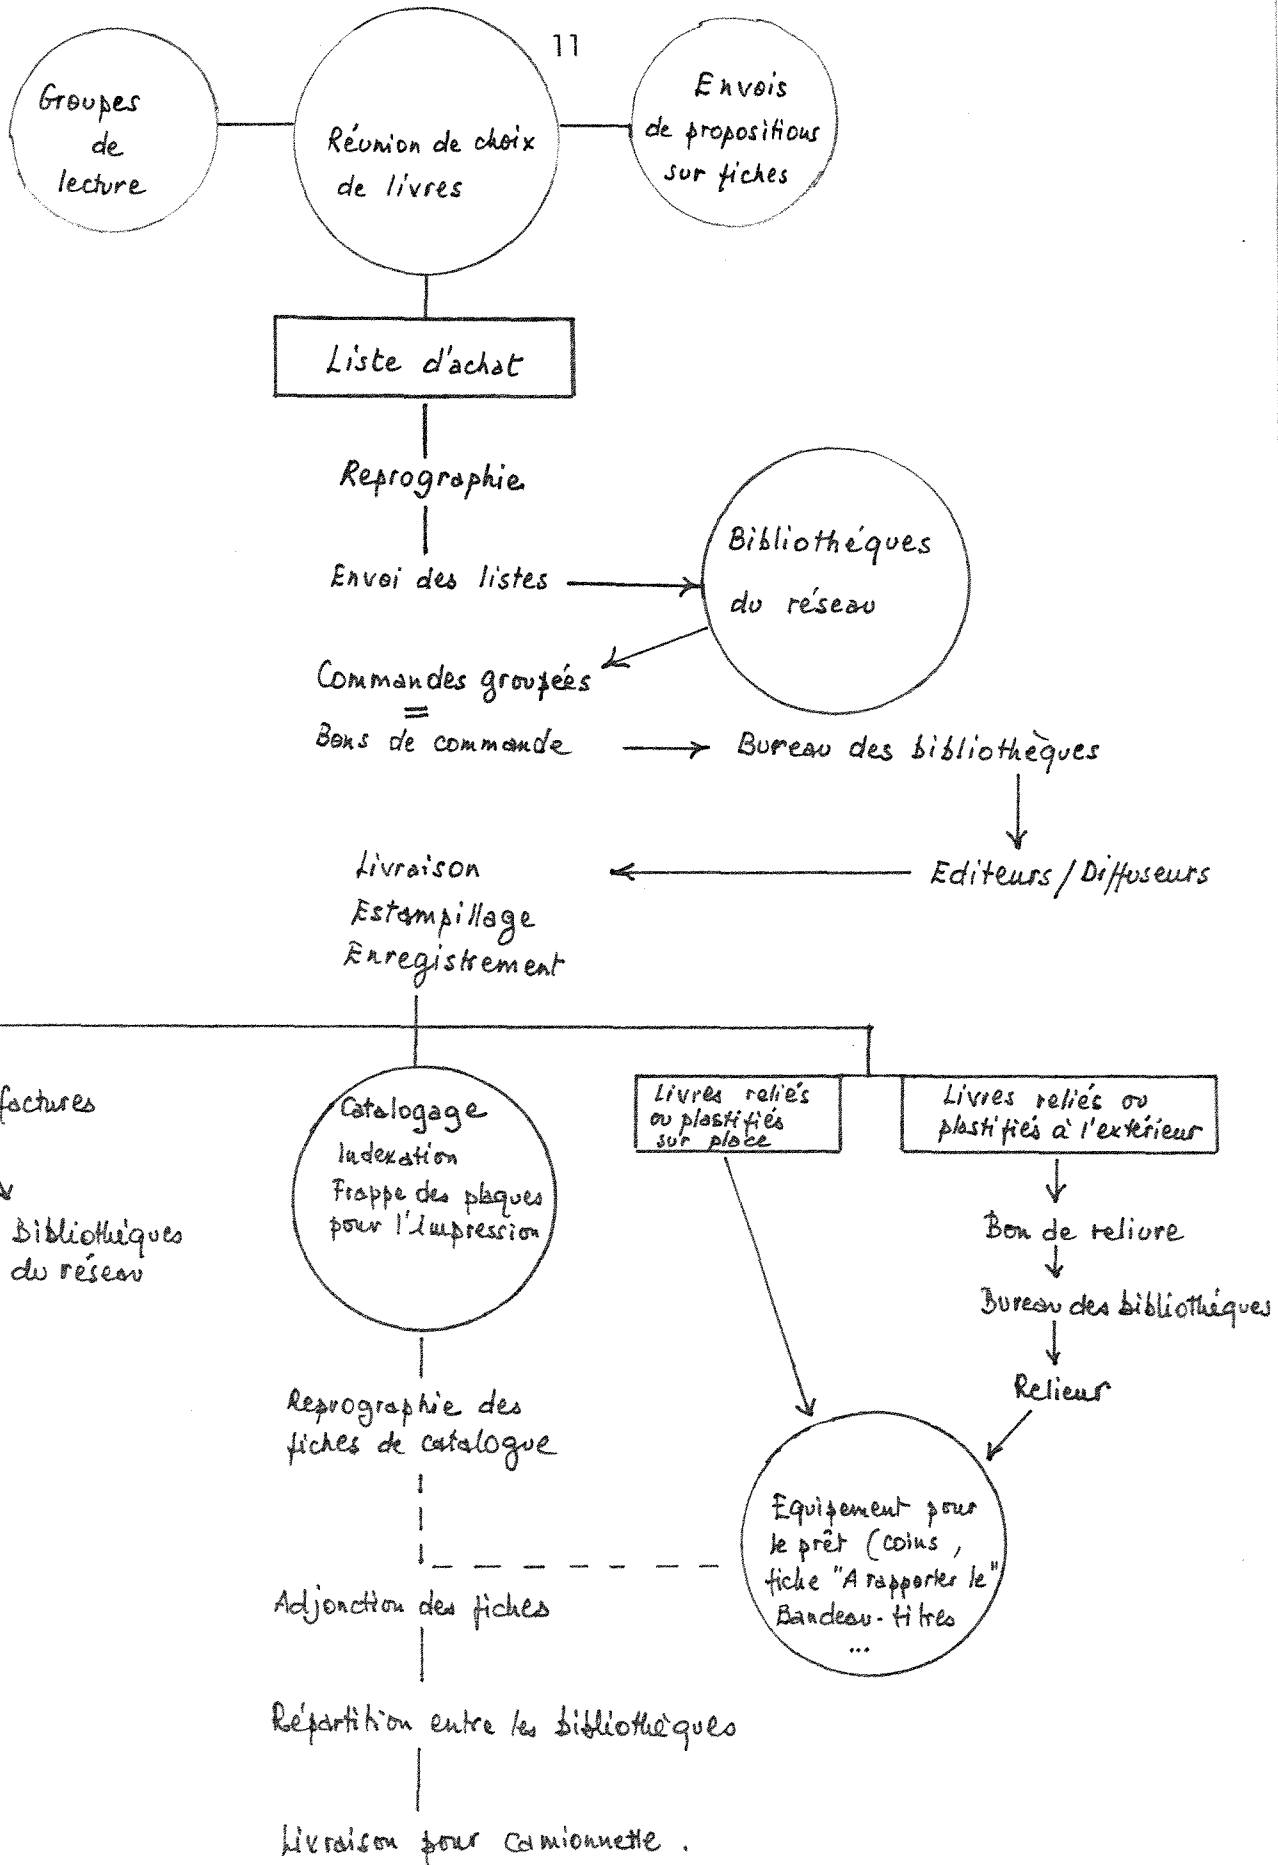 11
Groupes
de
lecture
Réunion de choix
de livres
Envois
de propositions
sur fiches
Liste d'achat
Reprographie
Envoi des listes
Bibliothéques
du réseau
Commandes groupées
=
Bons de commande
Bureau des bibliothèques
Livraison
Editeurs / Diffuseurs
Estampillage
Enregistrement
factures
Bibliothèques
du réseau
Catalogage
Indexation
Frappe des plaques
pour l'impression
Livres reliés
ou plastifiés
sur place
Livres reliés ou
plastifiés à l'extérieur
Bon de reliure
Bureau des bibliothéques
Relieur
Reprographie des
fiches de catalogue
Equipement pour
le prêt (coins,
fiche "A rapporter le"
Bandeau-titres
...
Adjonction des fiches
Répartition entre les bibliothèques
Livraison pour camionnette.